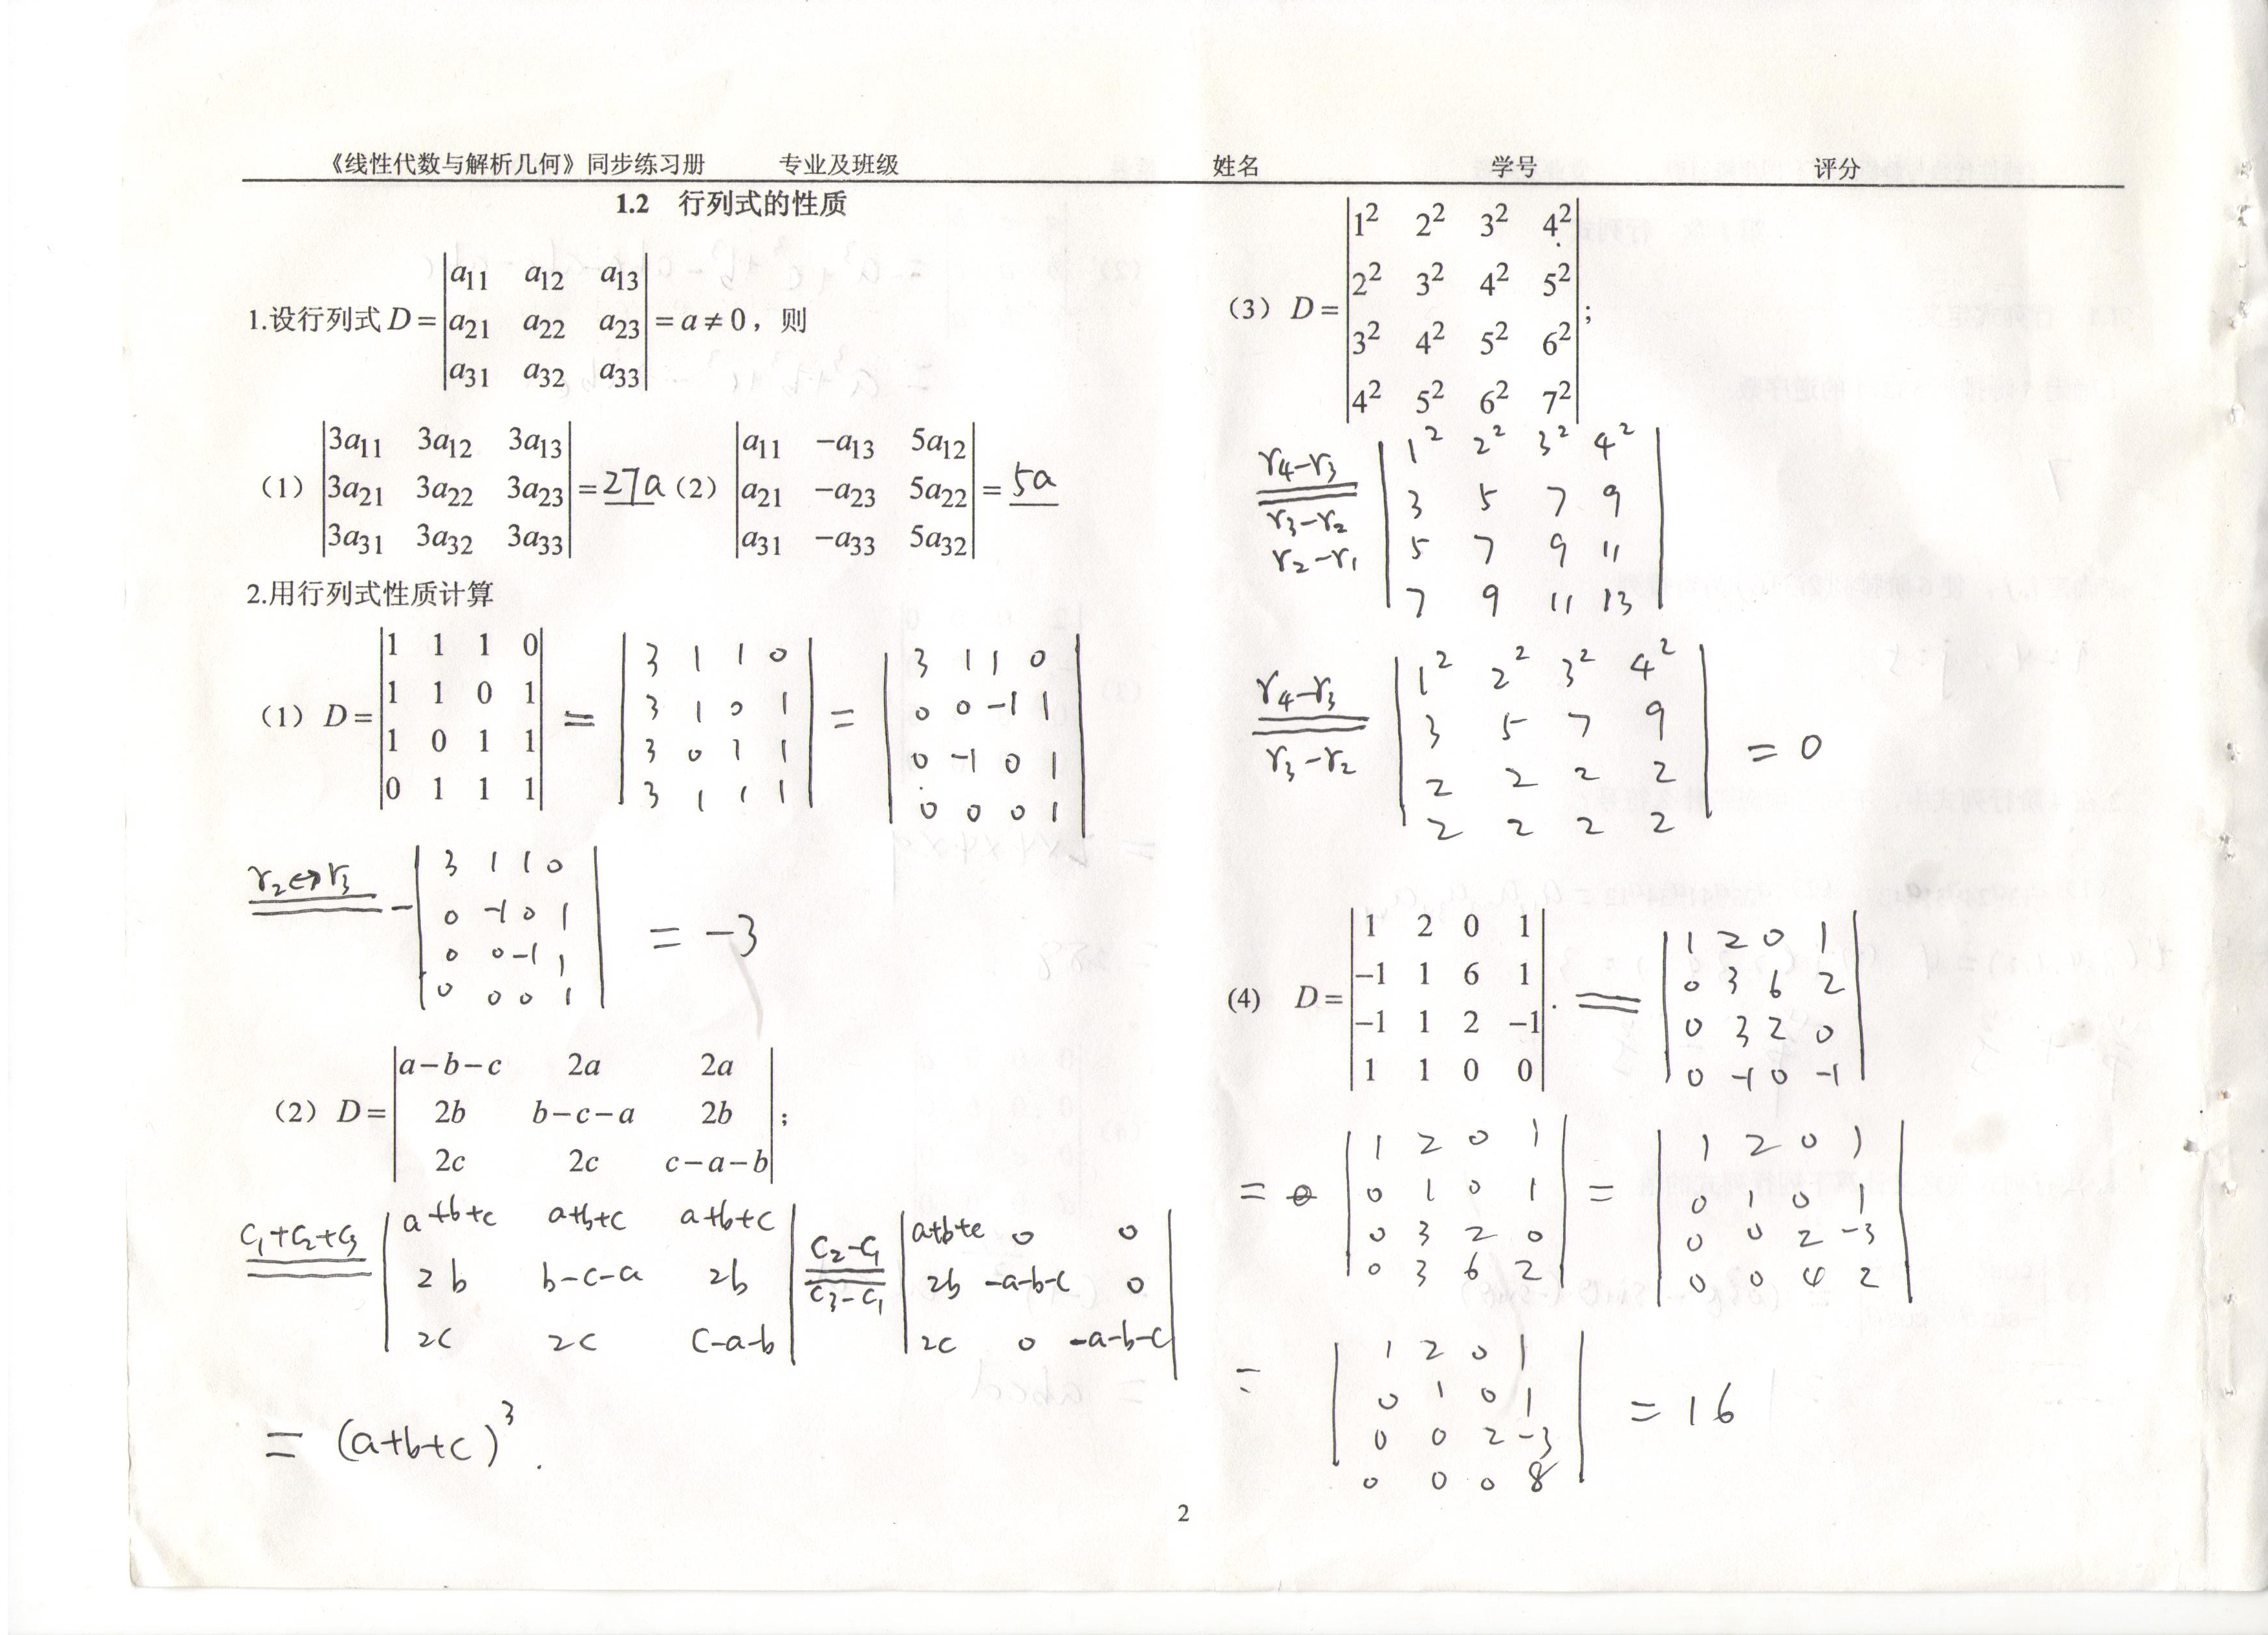 《线性代数与解析几何》同步练习册 专业及班级 姓名 学号 评分
1.2 行列式的性质
1.设行列式 D = |a11 a12 a13|
|a21 a22 a23| = a ≠ 0，则
|a31 a32 a33|
（1） |3a11 3a12 3a13|
|3a21 3a22 3a23| = 27a
|3a31 3a32 3a33|
（2） |a11 −a13 5a12|
|a21 −a23 5a22| = 5a
|a31 −a33 5a32|
2.用行列式性质计算
（1） D = |1 1 1 0|
|1 1 0 1|
|1 0 1 1|
|0 1 1 1|
= |3 1 1 0|
|3 1 0 1|
|3 0 1 1|
|3 1 1 1|
= |3 1 1 0|
|0 0 -1 1|
|0 -1 0 1|
|0 0 0 1|
r2↔r3 − |3 1 1 0|
|0 -1 0 1|
|0 0 -1 1|
|0 0 0 1|
= −3
（2） D = |a−b−c 2a 2a|
|2b b−c−a 2b| ；
|2c 2c c−a−b|
C1+C2+C3 |a+b+c a+b+c a+b+c|
|2b b-c-a 2b|
|2c 2c c-a-b|
C2-C1
C3-C1
|a+b+c 0 0|
|2b -a-b-c 0|
|2c 0 -a-b-c|
= (a+b+c)³.
（3） D = |1² 2² 3² 4²|
|2² 3² 4² 5²| ；
|3² 4² 5² 6²|
|4² 5² 6² 7²|
r4-r3
r3-r2
r2-r1
|1² 2² 3² 4²|
|3 5 7 9|
|5 7 9 11|
|7 9 11 13|
r4-r3
r3-r2
|1² 2² 3² 4²|
|3 5 7 9|
|2 2 2 2|
|2 2 2 2|
= 0
(4) D = |1 2 0 1|
|−1 1 6 1| .
|−1 1 2 −1|
|1 1 0 0|
= |1 2 0 1|
|0 3 6 2|
|0 3 2 0|
|0 -1 0 -1|
= |1 2 0 1|
|0 1 0 1|
|0 3 2 0|
|0 3 6 2|
= |1 2 0 1|
|0 1 0 1|
|0 0 2 -3|
|0 0 4 2|
= |1 2 0 1|
|0 1 0 1|
|0 0 2 -3|
|0 0 0 8|
= 16
2